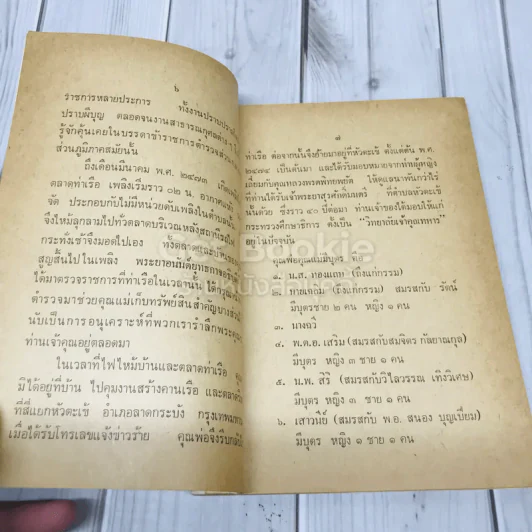 ๖
ราชการหลายประการ ทั้งงานปราบปราม
ปราบผีบุญ ตลอดจนงานสาธารณกุศลต่าง ๆ
รู้จักคุ้นเคยในบรรดาข้าราชการตำรวจส่วน
ส่วนภูมิภาคสมัยนั้น
ถึงเดือนมีนาคม พ.ศ. ๒๔๗๓ เกิด
ตลาดท่าเรือ เพลิงเริ่มราว ๐๒ น. อากาศ
จัด ประกอบกับไม่มีหน่วยดับเพลิงในตำบลนั้น
จึงให้ลุกลามไปทั่วตลาดบริเวณหลังสถานีรถไฟ
กระทั่งเช้าจึงมอดไปเอง (ทั้งตลาด
สูญสิ้นไปในเพลิง พระยาอนันต์ยุทธกาจ
ได้มาตรวจราชการที่ท่าเรือในเวลานั้น ได้กรุณา
ตำรวจมาช่วยคุณแม่เก็บทรัพย์สินสำคัญบางส่วน
นับเป็นการอนุเคราะห์ที่พวกเรารำลึกพระคุณ
ท่านเจ้าคุณอยู่ตลอดมา
ในเวลาที่ไฟไหม้บ้านและตลาดท่าเรือ คุณ
มิได้อยู่ที่บ้าน ไปคุมงานสร้างคานเรือ และตลาด
ที่สี่แยกหัวตะเข้ อำเภอลาดกระบัง กรุงเทพมหา
เมื่อได้รับโทรเลขแจ้งข่าวร้าย คุณพ่อจึงรีบกลับ
๗
ท่าเรือ ต่อจากนั้นจึงย้ายมาอยู่ที่หัวตะเข้ ตั้งแต่ต้น พ.ศ.
๒๔๗๔ เป็นต้นมา และได้รับมอบหมายจากท่านผู้หญิง
เลี่ยมกับคุณหลวงพรตพิทยพยัต ให้ดูแลนาพันกว่าไร่
ที่ท่านได้รับเจ้าพระยาสุรศักดิ์มนตรี ที่ตำบลหัวตะเข้
นั้นด้วย ซึ่งราว ๔๐ ปีต่อมา ท่านเจ้าของได้มอบให้แก่
กระทรวงศึกษาธิการ ตั้งเป็น "วิทยาลัยเจ้าคุณทหาร"
อยู่ในปัจจุบัน
คุณพ่อคุณแม่มีบุตร คือ
๑. น.ส. ทองแถม (ถึงแก่กรรม)
๒. นายเถม (ถึงแก่กรรม) สมรสกับ รัตน์
มีบุตรชาย ๒ คน หญิง ๑ คน
๓. นางถวี
๔. พ.ต.อ. เสริม (สมรสกับสมจิตร กัลยาณกุล)
มีบุตร หญิง ๓ ชาย ๑ คน
๕. น.พ. สิริ (สมรสกับวิไลวรรณ เทิงวิเศษ)
มีบุตร หญิง ๓ ชาย ๑ คน
๖. เสาวนีย์ (สมรสกับ พ.อ. สนอง บุญเปี่ยม)
มีบุตร หญิง ๑ ชาย ๑ คน